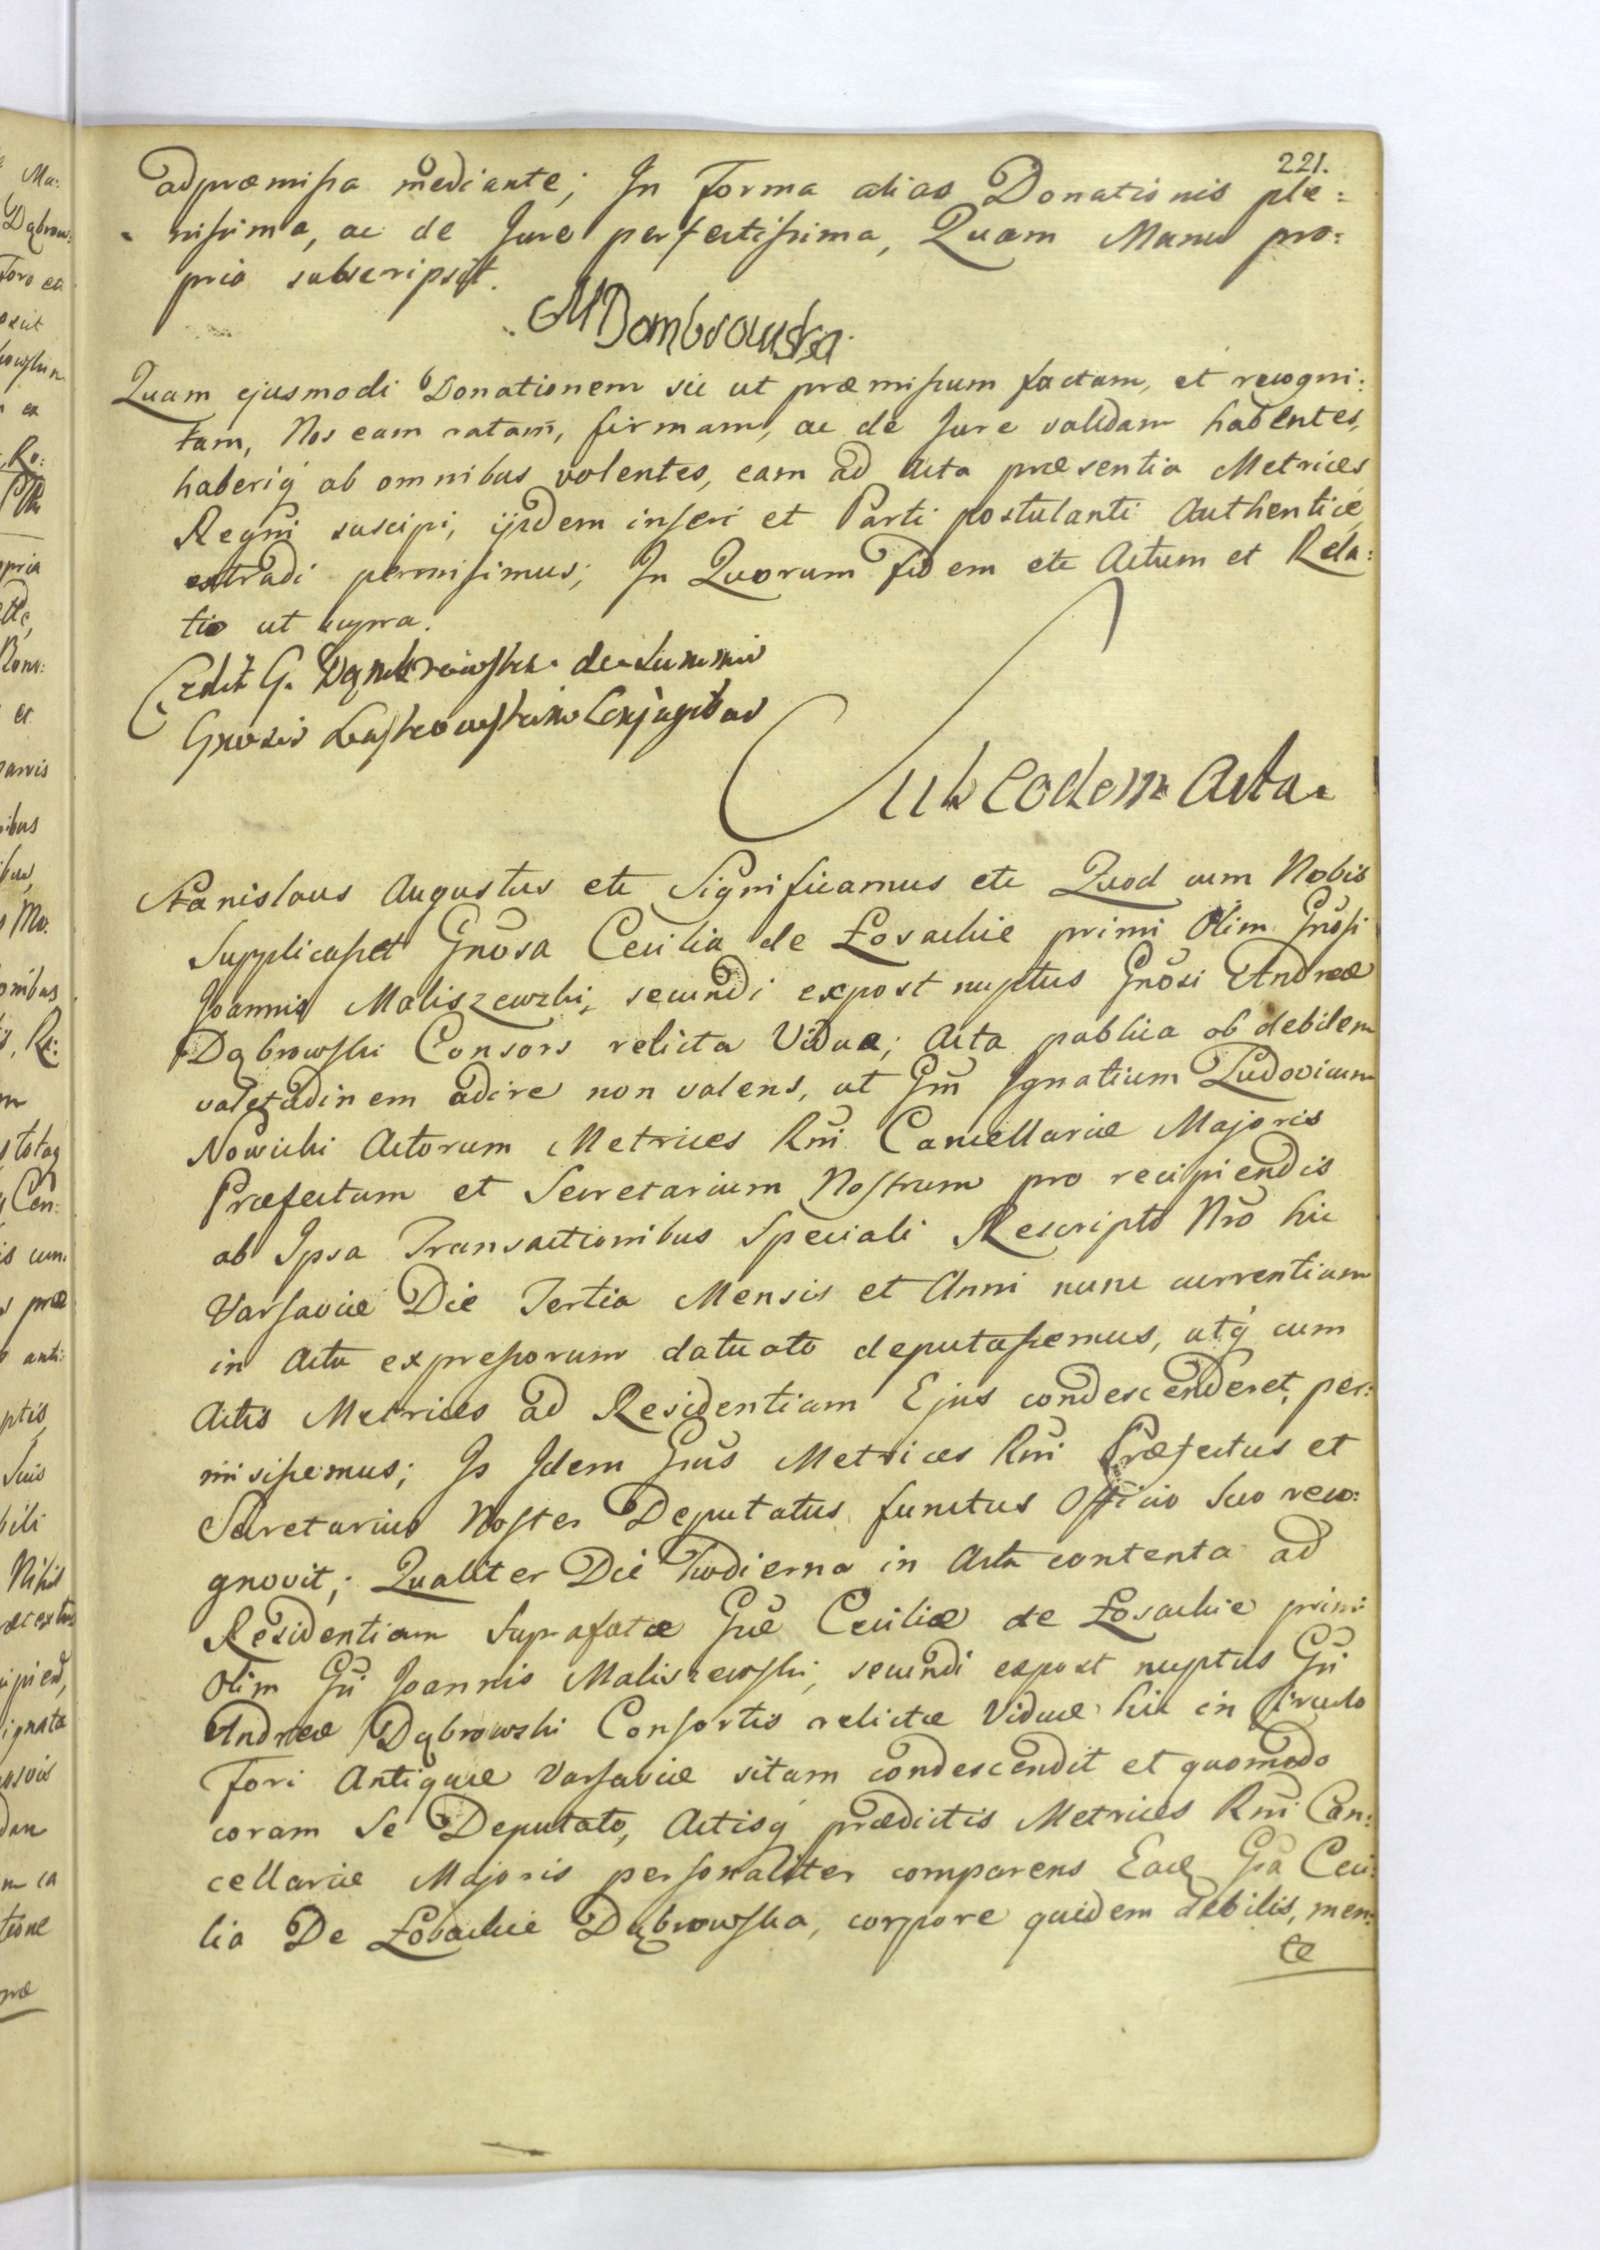 221.
adpræmissa mediante; In Forma alias Donationis ple=
nissima, ac de Jure perfectissima, Quam Manu pro=
pria subscripsit.
MDombrowska
Quam ejusmodi Donationem sic ut præmissum factam, et recogni=
tam, Nos eam ratam, firmam, ac de Jure validam habentes,
haberiq ab omnibus volentes, eam ad Acta præsentia Metrices
Regni suscipi, ijsdem inseri et Parti postulanti Authentice
extradi permisimus; In Quorum fidem etc Actum et Rela=
tio ut supra.
de Summis
Conjugibus
Sub eodem Acta.
Stanislaus Augustus etc Significamus etc Quod cum Nobis
Supplicasset Gnosa Cecilia de Łosackie primi Olim Gnosi
Joannis Maliszewski, secundi expost nuptus Gnosi Andreæ
Dąbrowski Consors relicta Vidua; Acta publica ob debilem
valetudinem adire non valens, ut Gm Ignatium Ludovicum
Nowicki Actorum Metrices Rni Cancellariæ Majoris
Præfectum et Secretarium Nostrum pro recipiendis
ab Ipsa Transactionibus Speciali Rescripto Nro hic
Varsaviæ Die Tertia Mensis et Anni nunc currentium
in Actu expressorum datuato deputassemus, utq cum
Actis Metrices ad Residentiam Ejus condescenderet, per=
misissemus; Is Idem Gnus Metrices Rni Præfectus et
Secretarius Noster Deputatus functus Officio Suo reco=
gnovit; Qualiter Die Hodierna in Actu contenta ad
Residentiam Suprafatæ Gnæ Ceciliæ de Łosackie primi
Olim Gni Joannis Maliszewski, secundi expost nuptus Gni
Andreæ Dąbrowski Consortis relictæ Viduæ hic in Circulo
Fori Antiquæ Varsaviæ sitam condescendit et quomodo
coram Se Deputato, Actisq prædictis Metrices Rni Can=
cellariæ Majoris personaliter comparens Eadem Gna Ceci=
lia De Łosackie Dąbrowska, corpore quidem debilis, men=
te